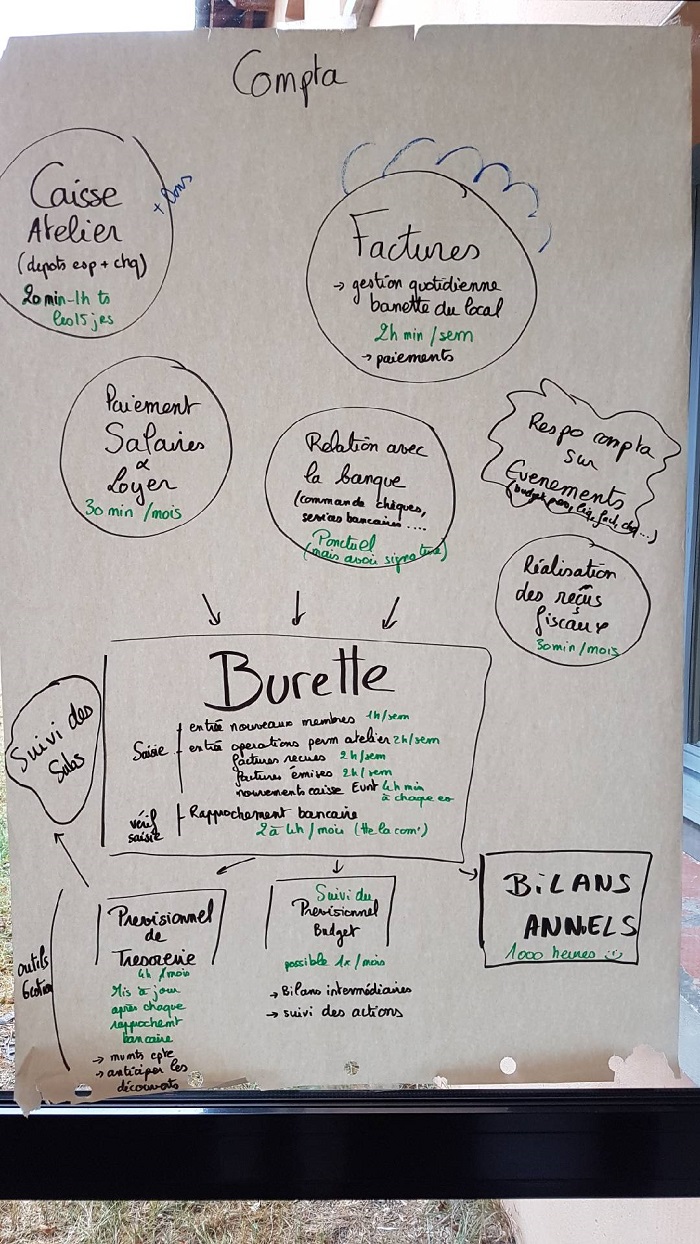 Compta
Caisse
Atelier
(depots esp + chq)
20 min-1h ts
les 15 jrs
+ Dons
Factures
→ gestion quotidienne
banette du local
2h min / sem
→ paiements
Paiement
Salaires
&
Loyer
30 min / mois
Relation avec
la banque
(commande chèques,
services bancaires ....
Ponctuel
(mais avoir signature)
Respo compta
sur
Evenements
Réalisation
des reçus
fiscaux
30 min / mois
Burette
Saisie
entrée nouveaux membres 1h/sem
entrée operations perm atelier 2h/sem
factures recues 2h/sem
factures émises 2h/sem
mouvements caisse Evnt 4h min
à chaque
vérif
saisie
Rapprochement bancaire
2 à 4h / mois (tte la com')
Suivi des
Subs
outils
Gestion
Previsionnel
de
Tresorerie
4h / mois
Mis à jour
après chaque
rapprochemt
bancaire
→ mvmts cpte
→ anticiper les
découverts
Suivi du
Previsionnel
Budget
possible 1x / mois
→ Bilans intermédiaires
→ suivi des actions
BILANS
ANNUELS
1000 heures